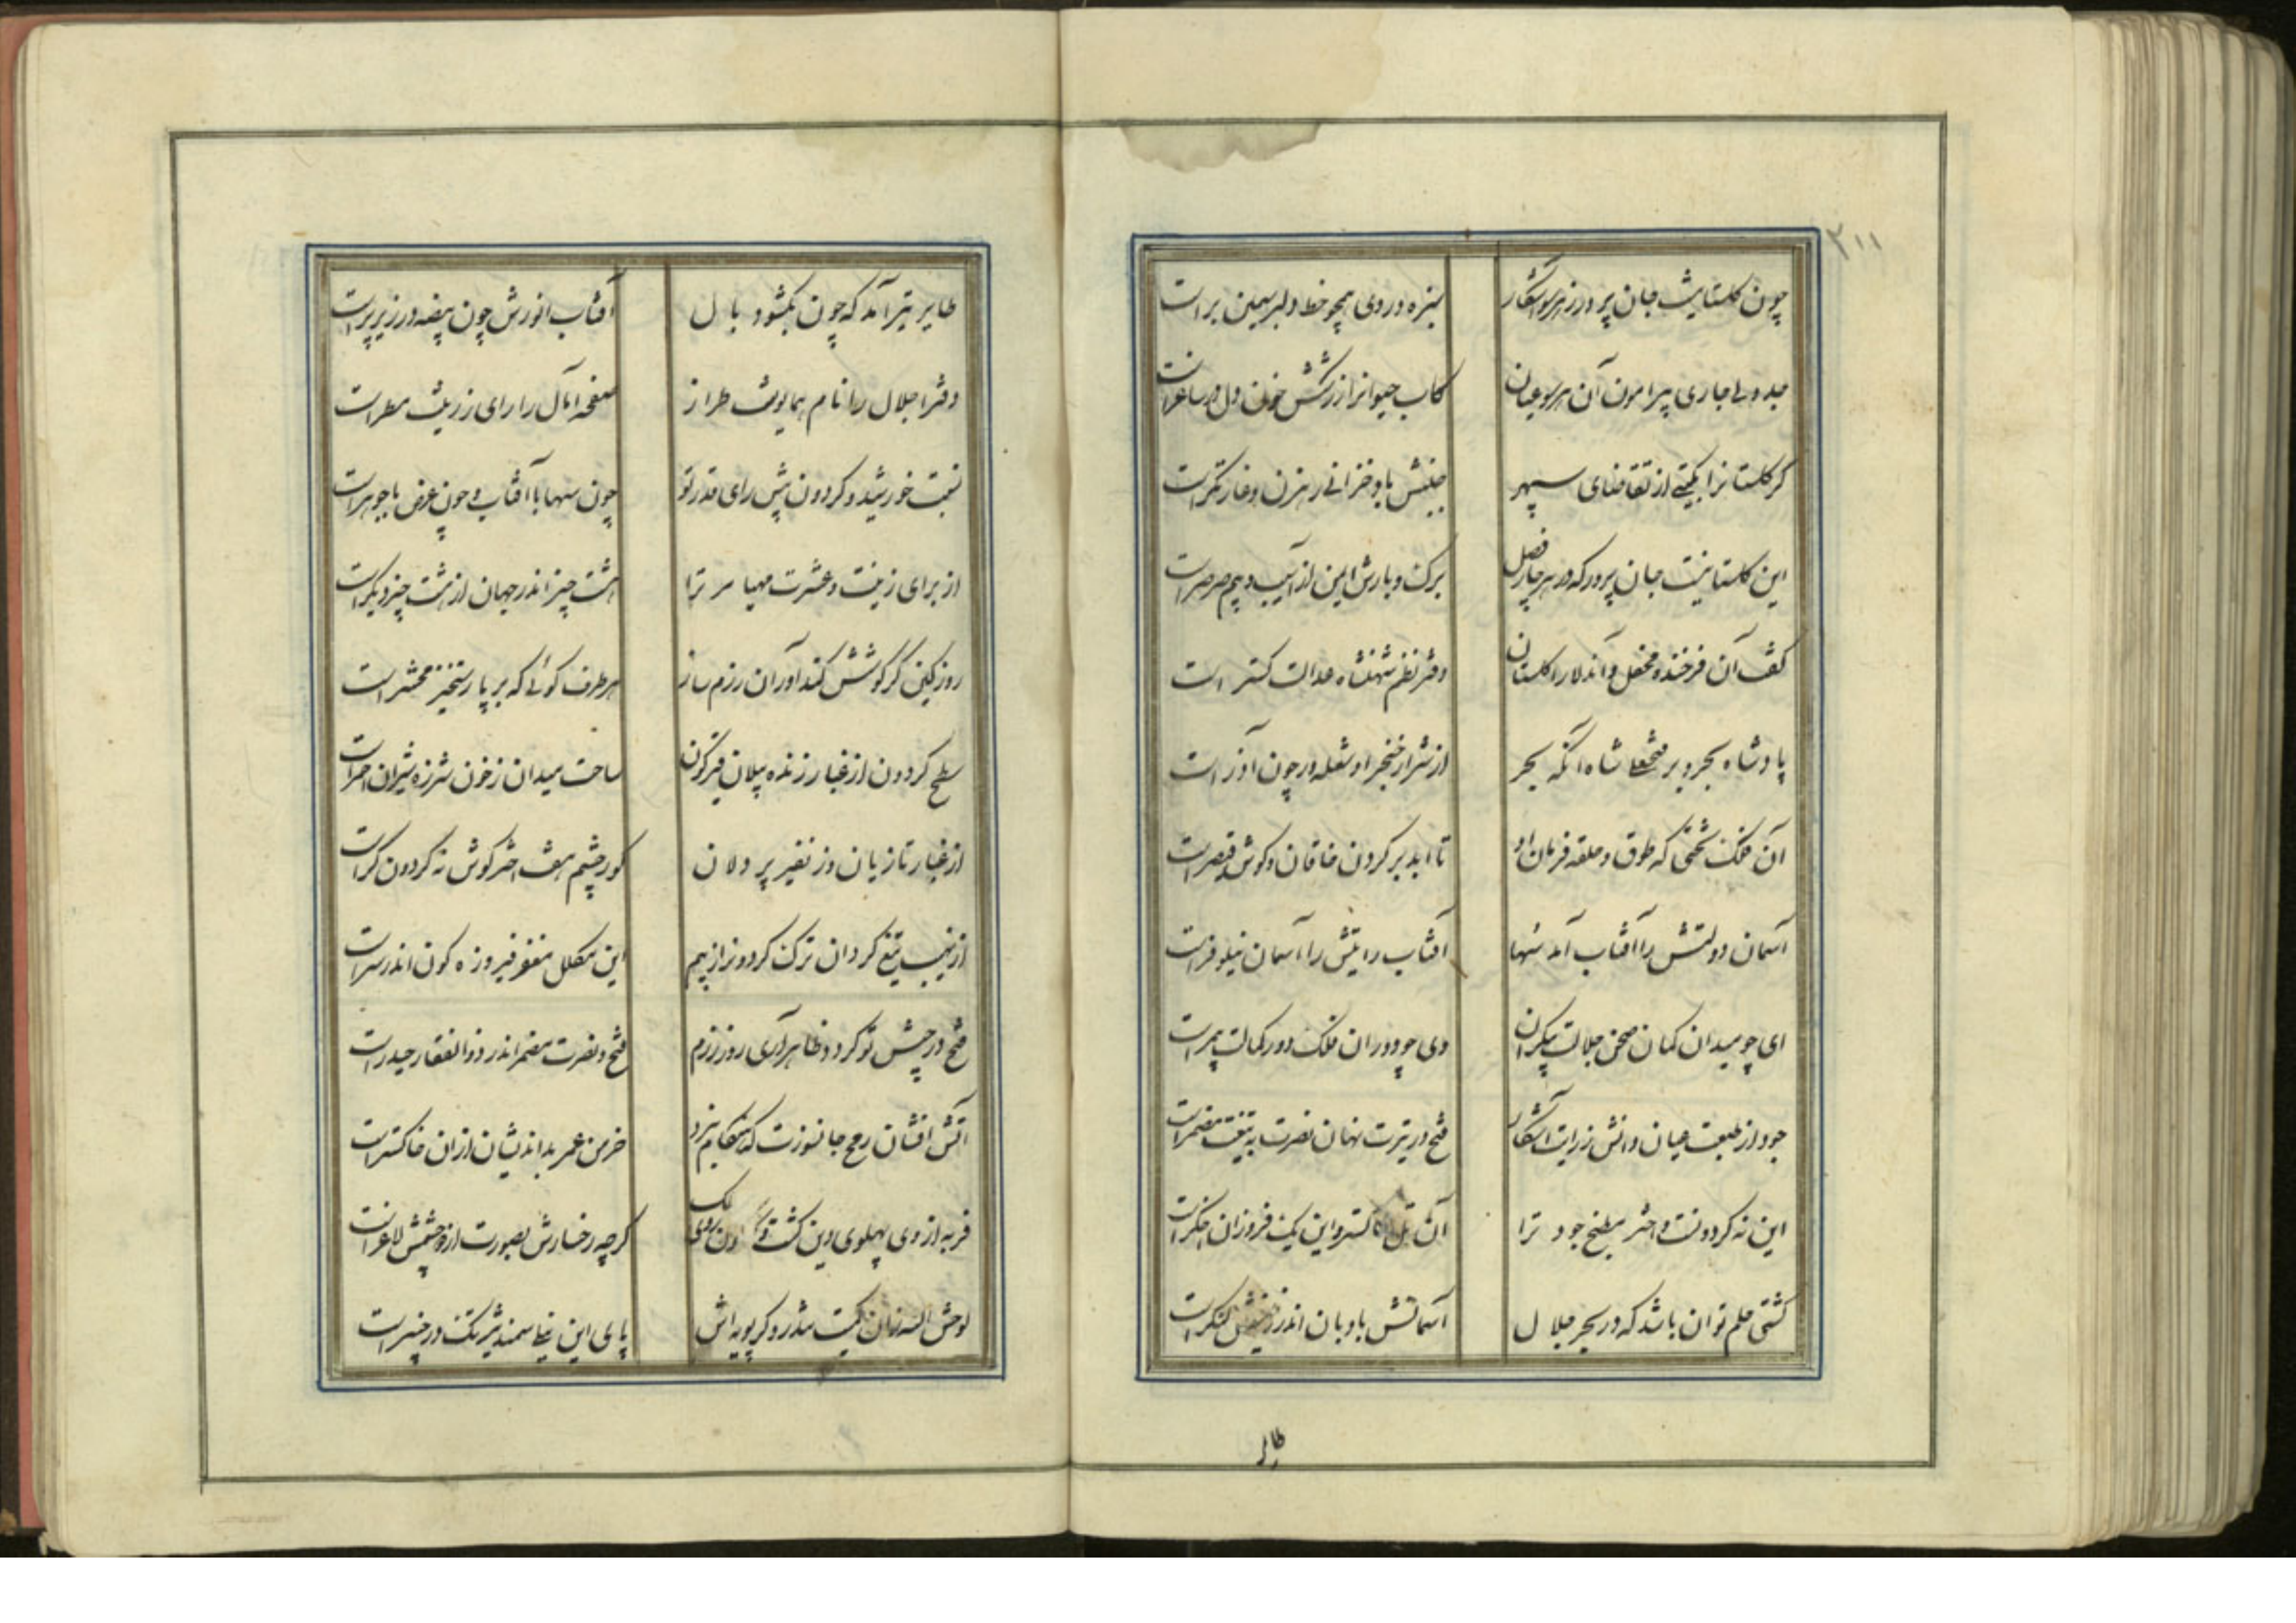 ۳۱۱
چون گلستانیست جان پرور ز هر سو آشکار
سبزه در وی همچو خط دلبر سیمین برا ست
جدولی جاری پیرامون آن هر سو عیان
کاب حیوانرا ز رشکش خون دل در ساغر است
گر گلستانرا بگیتی از تقاضای سپهر
جنبش باد خزانی رهزن و غارتگر است
این گلستانیست جان پرور که در هر چار فصل
برک و بارش ایمن از آسیب و بیم صرصر است
کیست آن فرخنده محفل و آن دلارا گلستان
دفتر نظم شهنشاه عدالت گستر است
پادشاه بحر و بر فتحعلی شاه آنکه بحر
از شرار خنجر او شعله ور چون آذر است
آن فلک تختی که طوق و حلقه فرمان او
تا ابد بر گردن خاقان و گوش قیصر است
آسمان دولتش را آفتاب آمد سها
آفتاب رایتش را آسمان نیلوفر است
ای چو میدان گمان صحن جلالت بیکران
وی چو دوران فلک دور کمالت بیمر است
جود از طبعت عیان دانش ز رایت آشکار
فتح در تیرت نهان نصرت به تیغت مضمر است
این نه گردونست و اختر مطبخ جود ترا
آن تل خاکستر و این یک فروزان اخگر است
کشتی حلم توان باشد که در بحر جلال
آسمانش بادبان اندر زمینش لنگر است
طایر
طایر تیر آمد که چون بگشود بال
آفتاب انورش چون بیضه در زیر پر است
دفتر اجلال را نام همایونت طراز
صفحه آمال را رای زرینت مسطر است
نسبت خورشید و گردون پیش رای و قدر تو
چون سها با آفتاب و چون عرض با جوهر است
از برای زینت و عشرت مهیا مر ترا
هشت چیز اندر جهان از هشت چیز دیگر است
روز کین گر کوشش کنداوران رزم ساز
هر طرف گوئی که بر پا رستخیز محشر است
سطح گردون از غبار زنده پیلان قیرگون
ساحت میدان ز خون شرزه شیران احمر است
از غبار تازیان وز نفیر پر دلان
کور چشم هفت اختر گوش نه گردون کر است
از نهیب تیغ گردان ترک گردونرا ز بیم
این مکلل مغفر فیروزه گون اندر سر است
فتح در جیش تو گردد ظاهر آری روز رزم
فتح و نصرت مضمر اندر ذوالفقار حیدر است
آتش افشان رمح جانسوزت که هنگام نبرد
خرمن عمر بداندیشان از آن خاکستر است
فربه از وی پهلوی دین گشت و ملک
گرچه رخسارش بصورت از چشمش لاغر است
لوحش الله زان کمیت تندرو کز پویه اش
پای این نیلی سمند تیزتک در چنبر است